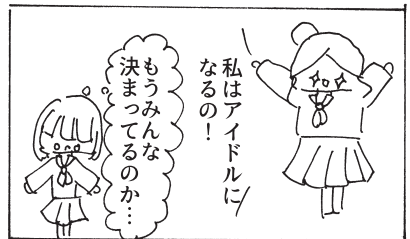 私はアイドルに
なるの！
もうみんな
決まってるのか…